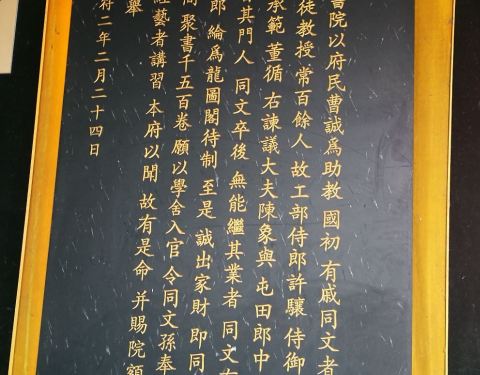 書院以府民曹誠爲助教國初有戚同文者
徒教授常百餘人故工部侍郎許驤侍御
承範董循右諫議大夫陳象輿屯田郎中
其門人同文卒後無能繼其業者同文有
郎綸爲龍圖閣待制至是誠出家財即同
聚書千五百卷願以學舍入官令同文孫奉
藝者講習本府以聞故有是命并賜院額
舉
二年二月二十四日